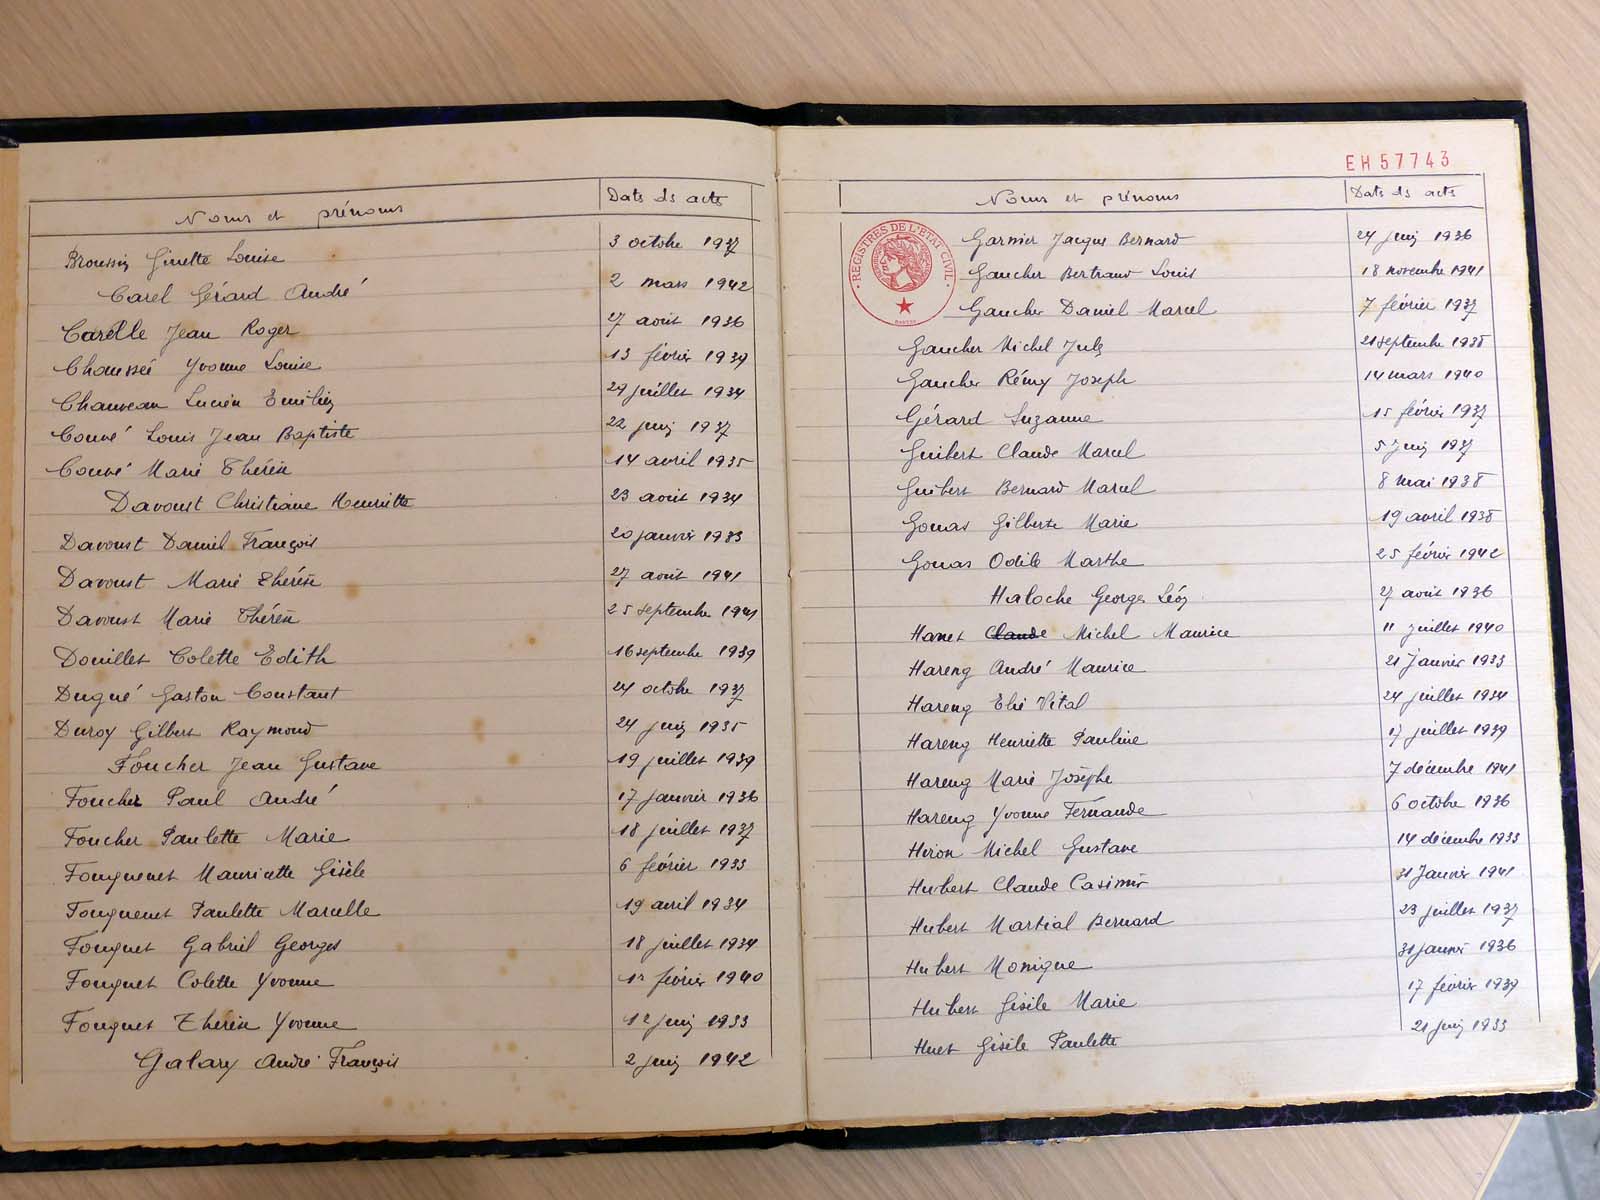 Noms et prénoms Date ds acts
Broussin Ginette Louise 3 octobre 1937
Carel Gérard André 2 mars 1942
Carelle Jean Roger 27 août 1936
Chaussée Yvonne Louise 13 février 1939
Chauveau Lucien Emilien 29 juillet 1934
Couvé Louis Jean Baptiste 22 juin 1937
Couvé Marie Thérèse 14 avril 1935
Davoust Christiane Henriette 23 août 1934
Davoust Daniel François 20 janvier 1933
Davoust Marie Thérèse 27 août 1941
Davoust Marie Thérèse 25 septembre 1941
Douillet Colette Edith 16 septembre 1939
Dugué Gaston Constant 24 octobre 1937
Duroy Gilbert Raymond 24 juin 1935
Foucher Jean Gustave 19 juillet 1939
Foucher Paul André 17 janvier 1936
Foucher Paulette Marie 18 juillet 1937
Fouquenet Mauricette Gisèle 6 février 1933
Fouquenet Paulette Marcelle 19 avril 1934
Fouquet Gabriel Georges 18 juillet 1934
Fouquet Colette Yvonne février 1940
Fouquet Thérèse Yvonne 12 juin 1933
Galary André François 2 juin 1942
EH57743
Noms et prénoms Date ds acts
REGISTRES DE L'ETAT CIVIL
Garnier Jacques Bernard 24 juin 1936
Gaucher Bertrand Louis 18 novembre 1941
Gaucher Daniel Marcel 7 février 1937
Gaucher Michel Jules 21 septembre 1938
Gaucher Rémy Joseph 14 mars 1940
Gérard Suzanne 15 février 1937
Guibert Claude Marcel 5 juin 1937
Guibert Bernard Marcel 8 mai 1938
Gouas Gilberte Marie 19 avril 1938
Gouas Odile Marthe 25 février 1942
Haloche Georges Léon 27 août 1936
Hanet Claude Michel Maurice 11 juillet 1940
Hareng André Maurice 21 janvier 1933
Hareng Elie Vital 24 juillet 1934
Hareng Henriette Pauline 17 juillet 1939
Hareng Marie Josèphe 7 décembre 1941
Hareng Yvonne Fernande 6 octobre 1936
Heron Michel Gustave 14 décembre 1933
Hubert Claude Casimir 31 janvier 1941
Hubert Martial Bernard 23 juillet 1937
Hubert Monique 31 janvier 1936
Hubert Gisèle Marie 17 février 1939
Huet Gisèle Paulette 21 juin 1933